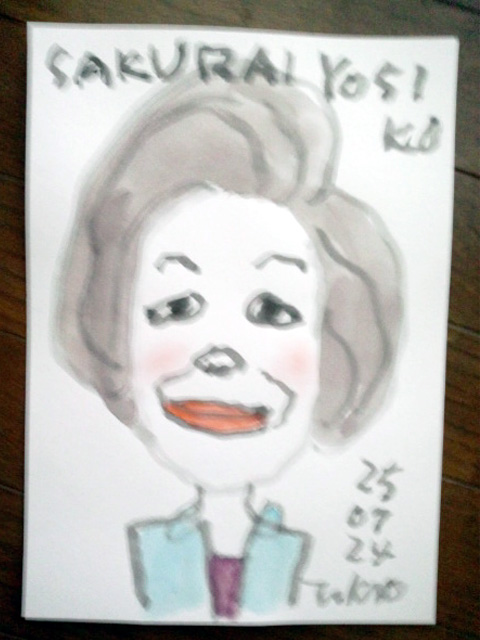 SAKURAI YOSI
KO
25
07
24